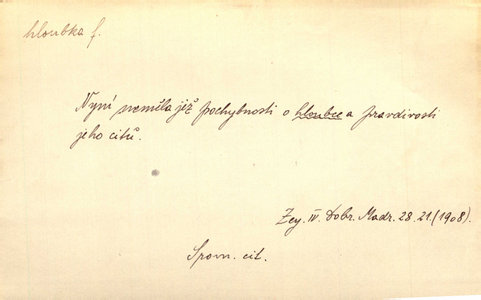 hloubka f.
Nyní neměla již pochybnosti o hloubce a pravdivosti
jeho citů.
Zey. IV. Dobr. Madr. 28. 21. (1908).
Spom. cit.